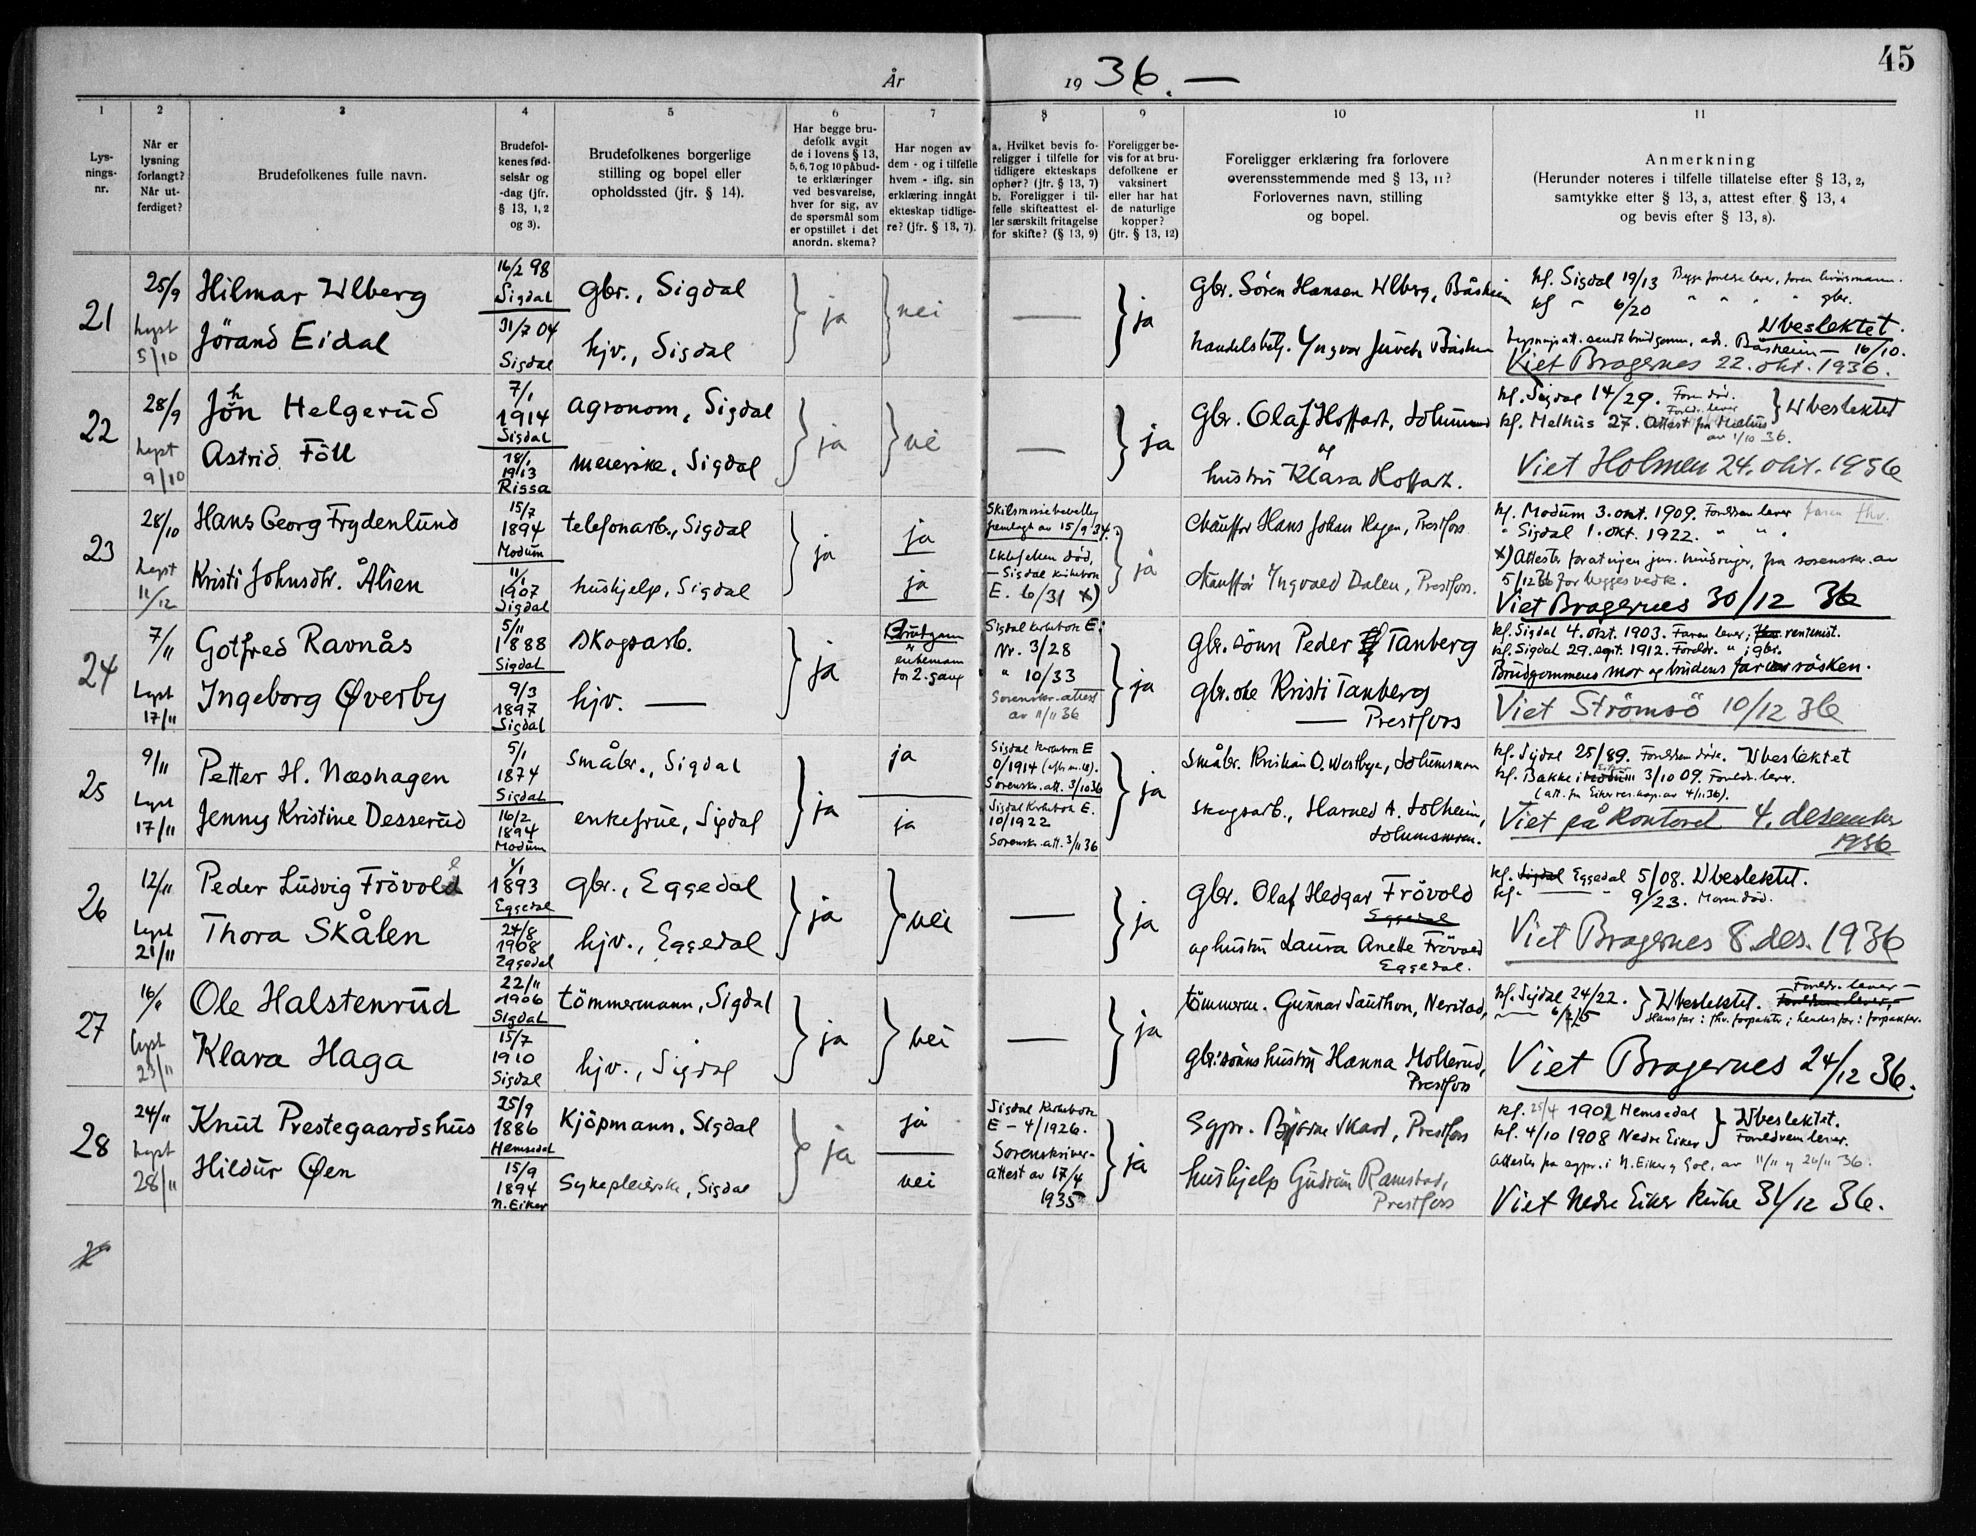 45
År 1936. —
1 2 3 4 5 6 7 8 9 10 11
Lys-
nings-
nr.
Når er
lysning
forlangt?
Når ut-
ferdiget?
Brudefolkenes fulle navn.
Brudefol-
kenes fød-
selsår og
-dag (jfr.
§ 13, 1, 2
og 3).
Brudefolkenes borgerlige
stilling og bopel eller
opholdssted (jfr. § 14).
Har begge bru-
defolk avgit
de i lovens § 13,
5, 6, 7 og 10 påbud-
te erklæringer
ved besvarelse,
hver for sig, av
de spørsmål som
er opstillet i det
anordn. skema?
Har nogen av
dem - og i tilfelle
hvem - iflg. sin
erklæring inngåt
ekteskap tidlige-
re? (jfr. § 13, 7).
a. Hvilket bevis fo-
religger i tilfelle for
tidligere ekteskaps
ophør? (jfr. § 13, 7)
b. Foreligger i til-
felle skifteattest el-
ler særskilt fritagelse
for skifte? (§ 13, 9)
Foreligger be-
vis for at bru-
defolkene er
vaksinert
eller har hat
de naturlige
kopper?
(jfr. § 13, 12)
Foreligger erklæring fra forlovere
overensstemmende med § 13, 11?
Forlovernes navn, stilling
og bopel.
Anmerkning
(Herunder noteres i tilfelle tillatelse efter § 13, 2,
samtykke efter § 13, 3, attest efter § 13, 4
og bevis efter § 13, 8).
21
25/9
Lyst
5/10
Hilmar Ulberg
Jörand Eidal
16/2 98
Sigdal
31/7 04
Sigdal
gbr., Sigdal
hjv., Sigdal
ja
nei
—
ja
Gbr. Sören Hansen Ulberg, Båsheim
handelsbetj. Yngvar Juveth Båsheim
Kf. Sigdal 19/13
Kf " 6/20 " " " " gbr.
Ubeslektet.
Båsheim — 16/10.
Viet Bragernes 22. okt. 1936.
22
28/9
Lyst
9/10
John Helgerud
Astrid Föll
7/1
1914
Sigdal
18/1
1913
Rissa
agronom, Sigdal
meierske, Sigdal
ja
nei
—
ja
Gbr. Olaf Hoffart, Solumsmo
og
hustru Klara Hoffart.
Kf. Sigdal 14/29. Faren död.
Foreldr. lever
Kf. Melhus 27. Attest fra Melhus
av 1/10 36.
Ubeslektet
Viet Holmen 24. okt. 1936
23
28/10
Lyst
11/12
Hans Georg Frydenlund
Kristi Johnsdtr. Ålien
15/7
1894
Modum
11/1
1907
Sigdal
telefonarb., Sigdal
hushjelp, Sigdal
ja
ja
ja
Skilsmissebevilling
fremlagt av 15/9 34.
Ektefellen död,
— Sigdal kirkebok
E. 6/31 x)
ja
Chaufför Hans Johan Hagen, Prestfoss
Chaufför Yngvald Dalen, Prestfoss.
Kf. Modum 3. okt. 1909. Foreldren lever faren fhv.
" Sigdal 1. okt. 1922. " " .
x) Attester for at ingen jur. hindringer, fra sorenskr. av
5/12 36 for begges vedk.
Viet Bragernes 30/12 36
24
7/11
Lyst
17/11
Gotfred Ravnås
Ingeborg Øverby
5/11
1888
Sigdal
9/3
1897
Sigdal
skogsarb.
hjv. —
ja
Brudgom
er
enkemann
for 2. gang
Sigdal kirkebok E:
Nr. 3/28
" 10/33
Sorenskr. attest
av 11/11 36
ja
Gbr. sönn Peder Tanberg
gbr. dtr Kristi Tanberg
— Prestfoss
Kf. Sigdal 4. okt. 1903. Faren lever; rentenist.
Kf. Sigdal 29. sept. 1912. Foreldr. " ; gbr.
Brudgommens mor og brudens far var sösken.
Viet Strömsö 10/12 36
25
9/11
Lyst
17/11
Petter H. Næshagen
Jenny Kristine Desserud
5/1
1874
Sigdal
16/2
1894
Modum
småbr., Sigdal
enkefrue, Sigdal
ja
ja
ja
Sigdal kirkebok E
0/1914
Sorenskr. att. 3/10 36
Sigdal Kirkebok E.
10/1922
Sorenskr. att. 3/11 36
ja
Småbr. Kristian O. Westbye, Solumsmoen
skogsarb., Harald A. Solheim,
Solumsmoen.
Kf. Sigdal 25/89. Foreldren döde. Ubeslektet
Kf. Bakke i Eiker 3/10 09. Foreldr. lever.
(att. fra Eiker res. kap. av 4/11 36).
Viet på kontoret 4. desember
1936
26
12/11
Lyst
21/11
Peder Ludvig Frövold
Thora Skålen
1/1
1893
Eggedal
24/8
1908
Eggedal
gbr., Eggedal
hjv., Eggedal
ja
nei
—
ja
Gbr. Olaf Hedgar Frövold
Eggedal
og hustru Laura Anette Frövold
Eggedal.
Kf. Sigdal Eggedal 5/08. Ubeslektet.
Kf. — " 9/23. Moren död.
Viet Bragernes 8. des. 1936
27
16/11
Lyst
23/11
Ole Halstenrud
Klara Haga
22/11
1906
Sigdal
15/7
1910
Sigdal
tömmermann, Sigdal
hjv., Sigdal
ja
nei
—
ja
tömmerm. Gunnar Sauthon, Nerstad,
gbr. sönns hustru Hanna Mollerud,
Prestfoss
Foreldr. lever —
Kf. Sigdal 24/22.
Ubeslektet. Foreldrene lever,
Hans far: fhv. forpakter; hendes far: forpakter.
Viet Bragernes 24/12 36.
28
24/11
Lyst
28/11
Knut Prestegaardshus
Hildur Øen
25/9
1886
Hemsedal
15/9
1894
N. Eiker
Kjöpmann, Sigdal
Sykepleierske, Sigdal
ja
ja
nei
Sigdal Kirkebok
E – 4/1926.
Sorenskriver-
attest av 17/4
1935
ja
Sgpr. Bjarne Skard, Prestfoss
hushjelp Gudrun Ramstad,
Prestfoss
Kf. 25/4 1902 Hemsedal
Kf. 4/10 1908 Nedre Eiker
Ubeslektet.
Foreldrene lever.
Attester fra sgpr. i N. Eiker og Gol, av 11/11 og 20/11 36.
Viet Nedre Eiker kirke 31/12 36.